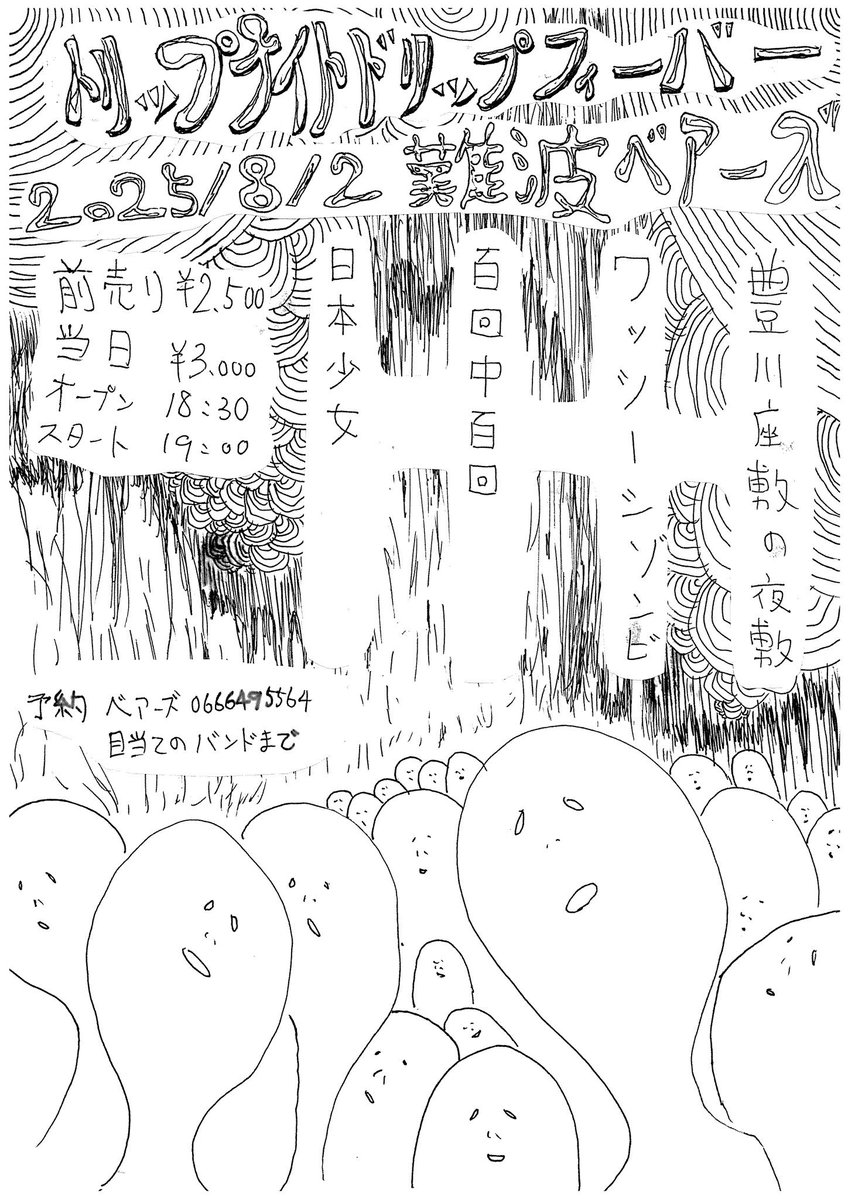 トリップナイトドリップフィーバー
2025/8/2 難波ベアーズ
豊川座敷の夜敷
ワッツーシゾンビ
百回中百回
日本少女
前売り ¥2,500
当日 ¥3,000
オープン 18:30
スタート 19:00
予約 ベアーズ 0666495564
目当てのバンドまで